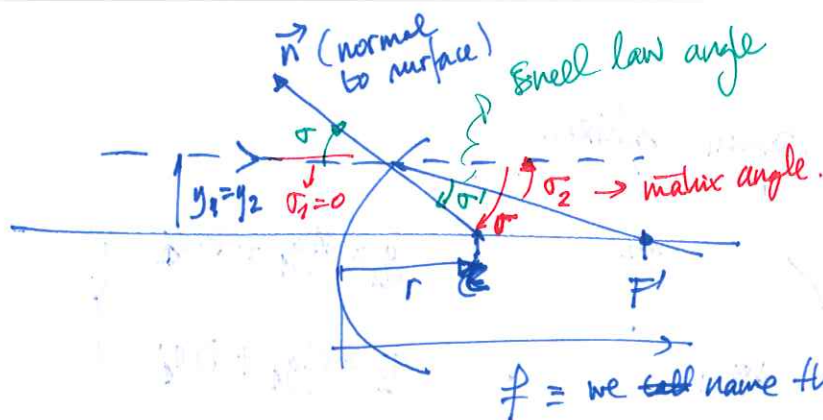 n⃗ (normal
to surface)
Snell law angle
σ
y₁=y₂
σ₁=0
σ'
σ
σ₂ → matrix angle.
r
C
F'
f ≡ we name th